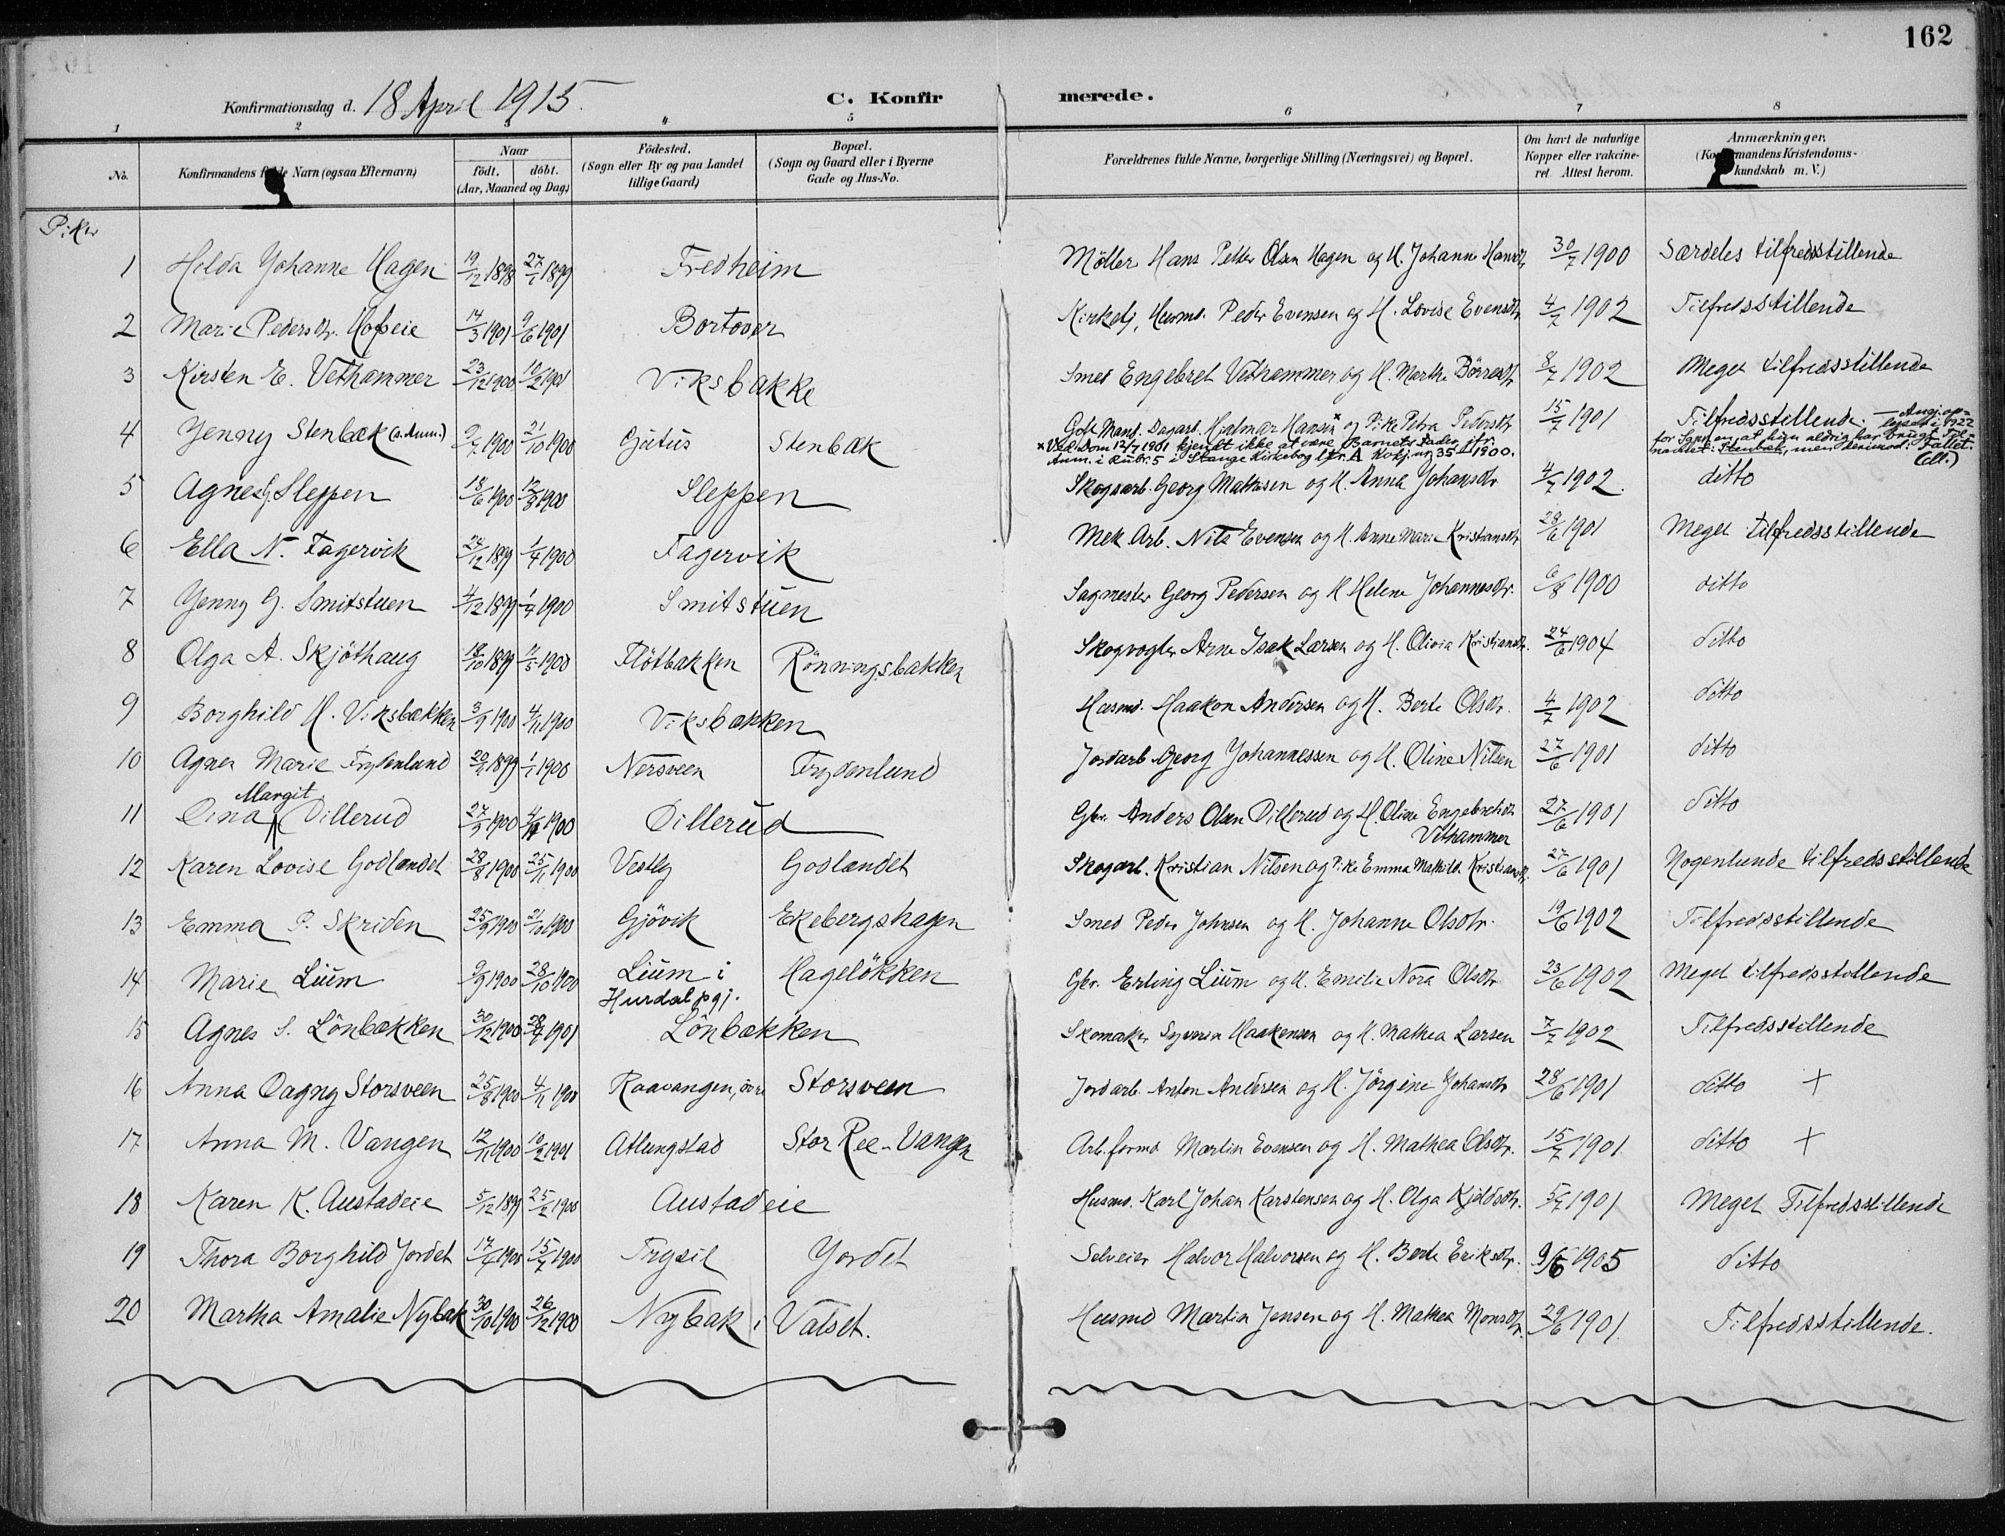 162
Konfirmationsdag d. 18 April 1915. C. Konfirmerede.
1 2 3 4 5 6 7 8
No. Konfirmandens fulde Navn (ogsaa Efternavn) Naar født. døbt. (Aar, Maaned og Dag) Födested. (Sogn eller By og paa Landet tillige Gaard) Bopæl. (Sogn og Gaard eller i Byerne Gade og Hus-No. Forældrenes fulde Navne, borgerlige Stilling (Næringsvei) og Bopæl. Om havt de naturlige Kopper eller vakcineret. Attest herom. Anmærkninger. (Konfirmandens Kristendomskundskab m. V.)
Piker
1 Hilda Johanne Hagen 19/12 1898 27/1 1899 Fredheim Möller Hans Petter Olsen Hagen og H. Johanne Hansdtr 30/7 1900 Særdeles tilfredsstillende
2 Marie Pedersdtr. Hofseie 14/3 1901 9/6 1901 Bortover Kirketj, Husmd. Peder Evensen og H. Lovise Evensdtr 4/7 1902 Tilfredsstillende
3 Kirsten E. Vethammer 23/12 1900 10/2 1901 Viksbakke Smed Engebret Vethammer og H. Marthe Börresdtr 8/7 1902 Meget tilfredsstillende
4 Jenny Stenbæk (s. Anm.) 9/7 1900 21/10 1900 Gjutus Stenbæk Gift Mand. Dagarb. Hjalmar Hansen x og Pike Petra Pedersdtr 15/7 1901 Tilfredsstillende. — Angi. oplyset i 1922
x Ved Dom 12/7 1901 kjendt ikke at være Barnets Fader, jfr. for Sand en at hun aldrig har brugt Tilnavnet: Stenbæk, men derimod: Fallet.
Anm. i Rubr. 5 i Stange Kirkebog Litr. A Kvkj. nr. 35 – 1900. (Ell.)
5 Agnes G. Sleppen 18/6 1900 12/8 1900 Sleppen Skogsarb. Georg Mathisen og H. Anna Johansdtr 4/7 1902. ditto
6 Ella N. Fagervik 24/12 1899 1/4 1900 Fagervik Mek Arb. Nils Evensen og H. Anne Marie Kristiansdtr 28/6 1901 Meget tilfredsstillende
7 Jenny G. Smitstuen 4/12 1899 1/4 1900 Smitstuen Sagmester Georg Pedersen og H Helene Johannesdtr. 6/8 1900 ditto
8 Olga A. Skjöthaug 18/10 1899 11/3 1900 Flötbakken Rönningsbakken Skogvogter Arne Isak Larsen og H. Olivia Kristiansdtr. 24/6 1904 ditto
9 Borghild H. Viksbakken 3/9 1900 4/11 1900 Viksbakken Husmd. Haakon Andersen og H. Berte Olsdtr. 4/7 1902 ditto
10 Agnes Marie Frydenlund 20/11 1899 1/1 1900 Nersveen Frydenlund Jordarb Georg Johannessen og H. Oline Nilsen 27/6 1901 ditto
Margit
11 Dina Dillerud 27/9 1900 4/11 1900 Dillerud Gbr. Anders Olsen Dillerud og H. Oline Engebretsdtr 27/6 1901 ditto
Vethammer
12 Karen Lovise Godlandet 28/8 1900 25/11 1900 Vestby Godlandet Skogarb. Kristian Nilsen og Pike Emma Mathild. Kristiansdtr. 27/6 1901 Nogenlunde tilfredsstillende
13 Emma P. Skriden 25/9 1900 21/10 1900 Gjövik Ekebergshagen Smed Peder Johnsen og H. Johanne Olsdtr. 19/6 1902 Tilfredsstillende
14 Marie Lium 9/9 1900 28/10 1900 Lium i Hagelökken Gbr. Erling Lium og H. Emilie Nora Olsdtr 23/6 1902 Meget tilfredsstillende
Hurdal pgj.
15 Agnes S. Lönbækken 30/12 1900 28/4 1901 Lönbækken Skomaker Syverin Haakensen og H. Mathea Larsen 7/7 1902 Tilfredsstillende
16 Anna Dagny Storsveen 25/8 1900 4/11 1900 Raavangen, övre Storsveen Jordarb. Anton Andersen og H. Jörgine Johansdtr 28/6 1901 ditto +
17 Anna M. Vangen 12/11 1900 10/2 1901 Atlungstad Stor Ree-Vangen Arb. formd Martin Evensen og H. Mathea Olsdtr. 15/7 1901 ditto +
18 Karen K. Austadeie 5/12 1899 25/2 1900 Austadeie Husmd. Karl Johan Karstensen og H. Olga Kjeldsdtr. 5/7 1901 Meget Tilfredsstillende
19 Thora Borghild Jordet 17/4 1900 15/7 1900 Trysil Jordet Selveier Halvor Halvorsen og H. Berte Eriksdtr. 9/6 1905 ditto
20 Martha Amalie Nybak 30/10 1900 26/12 1900 Nybak i Valset. Husmd Martin Jensen og H. Mathea Monsdtr. 29/6 1901 Tilfredsstillende.